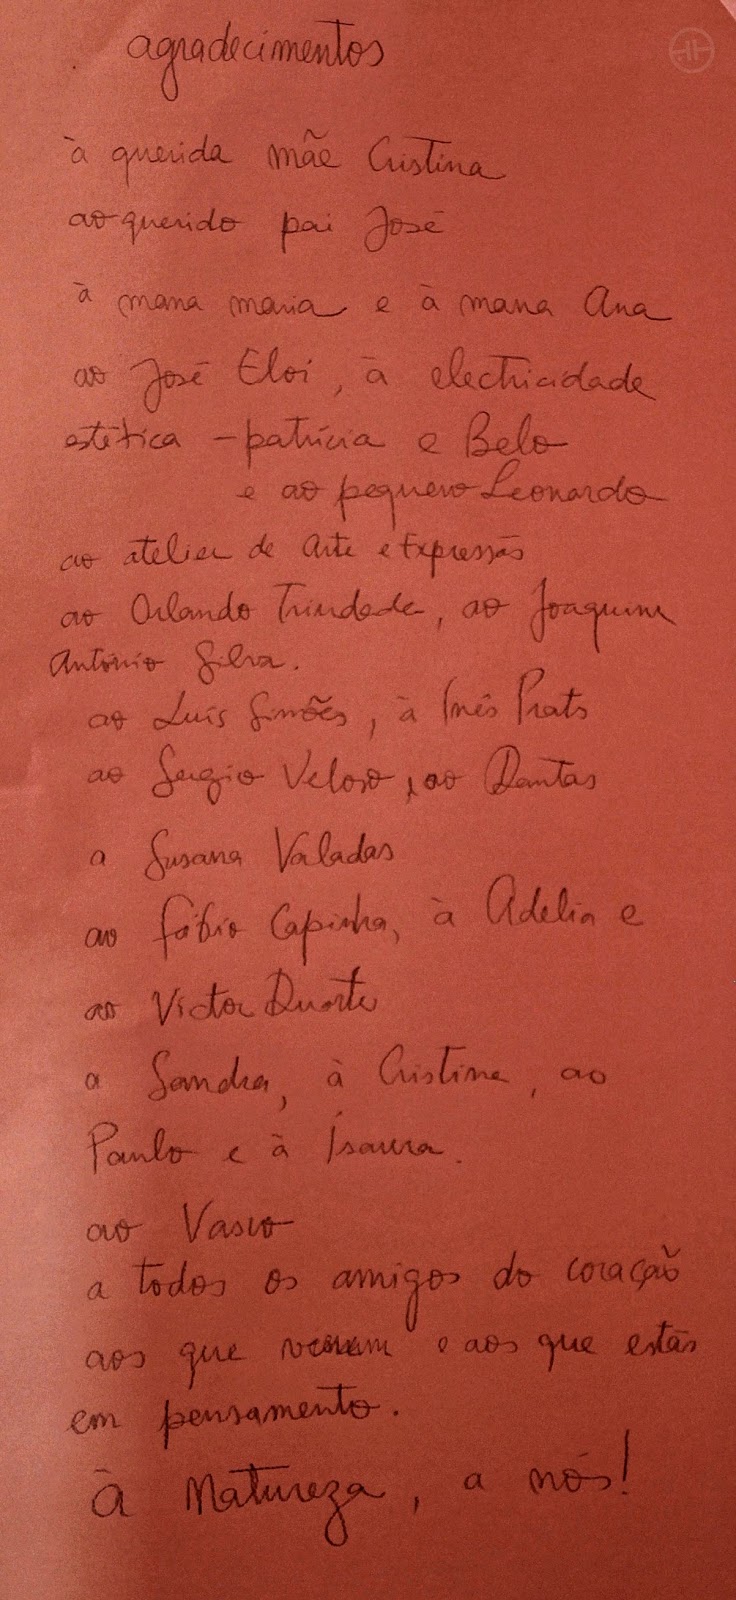 agradecimentos
à querida mãe Cristina
ao querido pai José
à mana maria e à mana Ana
ao José Eloi, à electricidade
estética - patrícia e Belo
e ao pequeno Leonardo
ao atelier de Arte e Expressão
ao Orlando Trindade, ao Joaquim
António Silva.
ao Luís Simões, à Inês Prats
ao Sergio Veloso, ao Dantas
a Susana Valadas
ao Fábio Capinha, à Adelia e
ao Victor Duarte
a Sandra, à Cristina, ao
Paulo e à Isaura.
ao Vasco
a todos os amigos do coração
aos que vieram e aos que estão
em pensamento.
À Natureza, a nós!